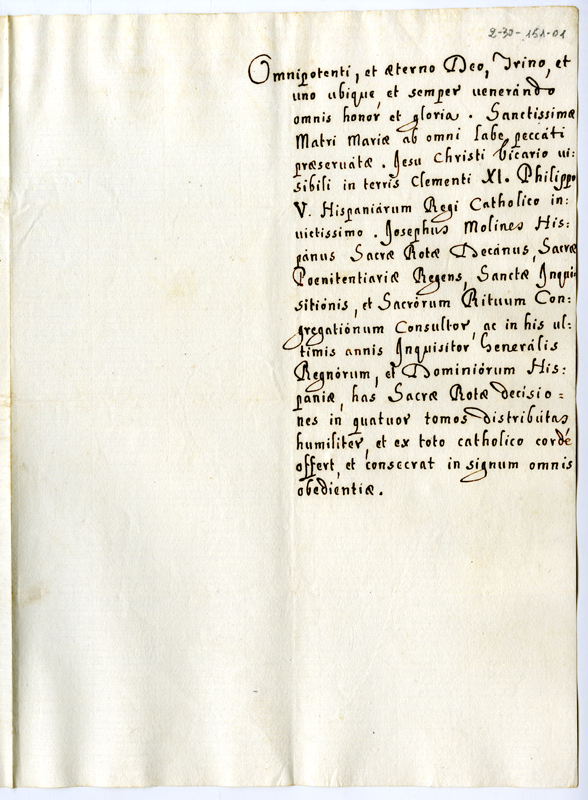 2-32-151-01
Omnipotenti, et æterno Deo, Trino, et
uno ubique, et semper uenerando
omnis honor et gloria. Sanctissimæ
Matri Mariæ ab omni labe peccati
præseruatæ. Jesu Christi Vicario ui:
sibili in terris Clementi XI. Philippo
V. Hispaniárum Regi Catholico in:
uictissimo. Josephus Molines His:
pánus Sacræ Rotæ Decánus, Sacræ
Poenitentiariæ Regens, Sanctæ Inqui
sitiónis, et Sacrórum Rituum Con:
gregatiónum Consultor, ac in his ul:
timis annis Inquisitor Generális
Regnórum, et Dominiórum His:
paniæ, has Sacræ Rotæ decisio:
nes in quatuor tomos distribútas
humiliter, et ex toto catholico corde
offert, et consecrat in signum omnis
obedientiæ.